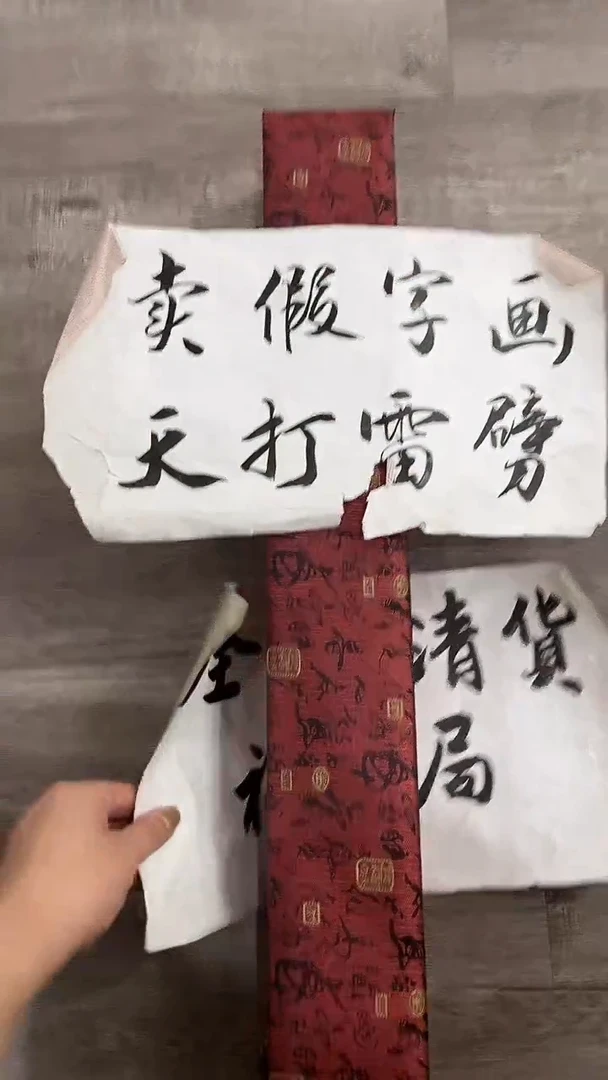 卖假字画
天打雷劈
全清货
局